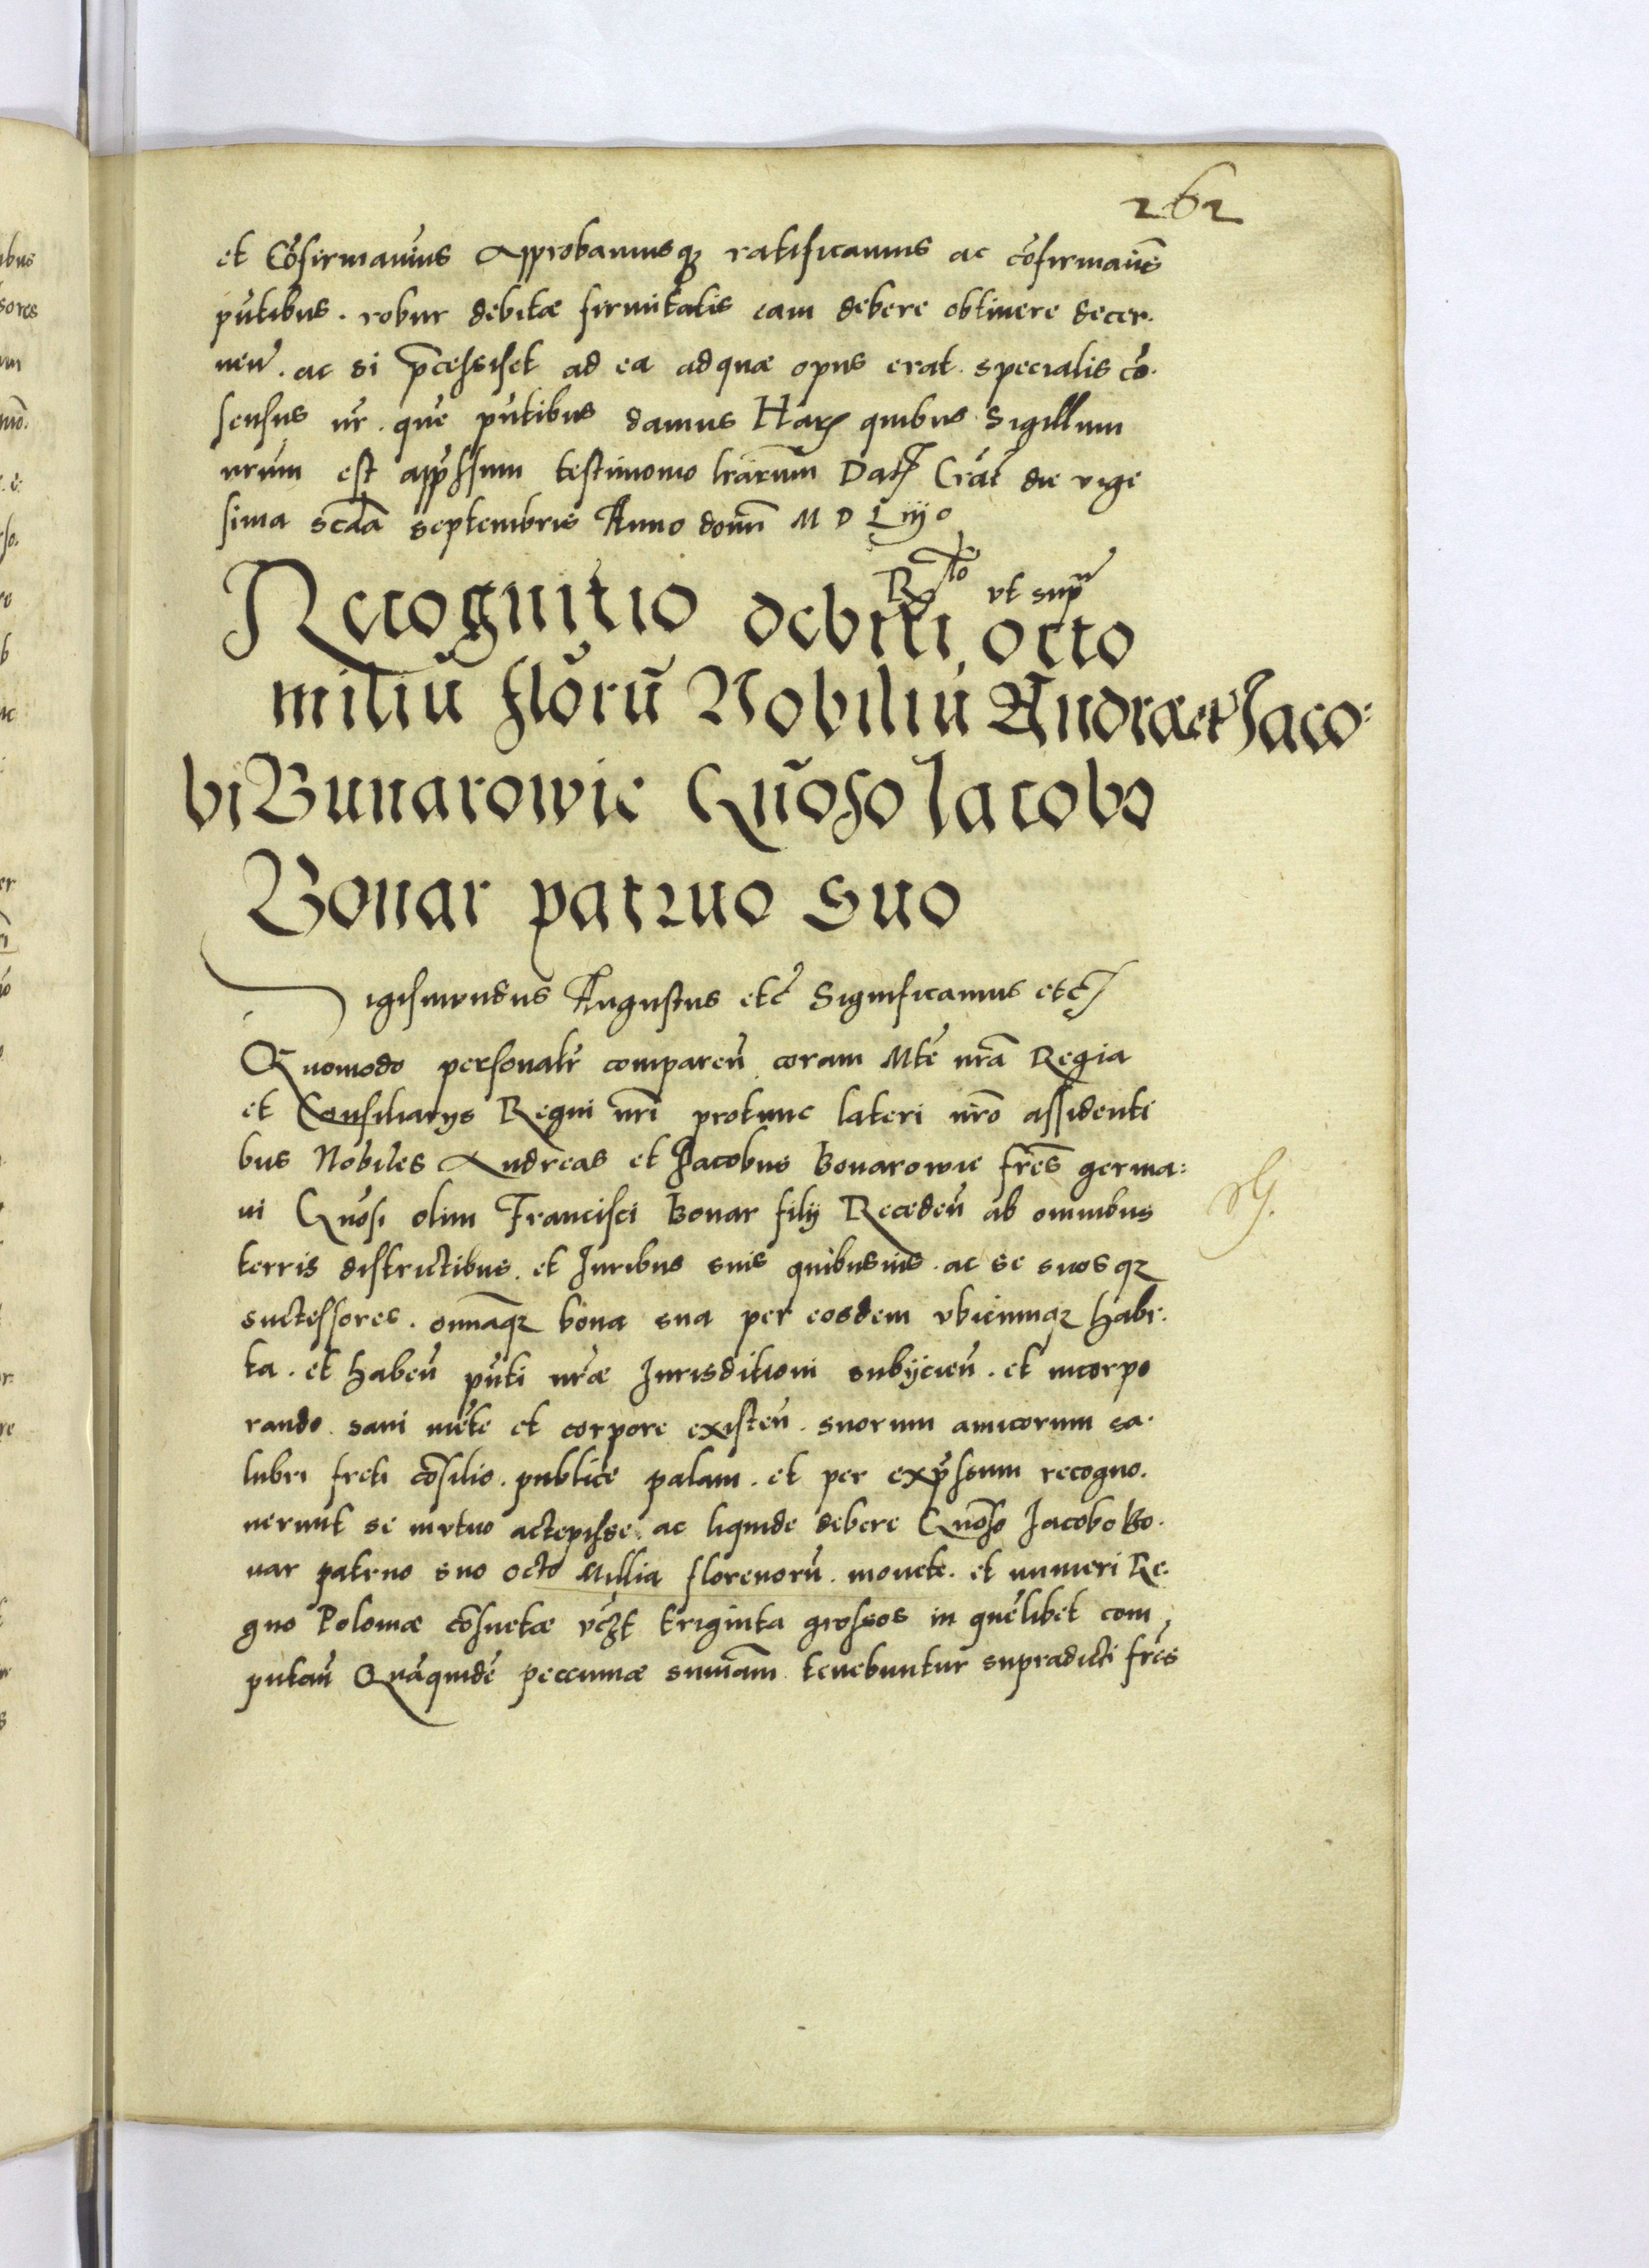 262
et Cõfirmavims Approbamusqz ratificamus ac cõfirmam̃s
pñtibus . robur debitæ firmitatis eam debere obtinere decer.
neñ . ac si p̃cessisset ad ea ad quæ opus erat specialis cõ.
sensus nr̃ . quẽ pñtibus damus Harz quibus Sigillum
nrũm est app̃ssum testimonio lrãrum Datz Craĉ die vige
sima scda septembris Anno domĩ M D Liijo
Rlto vt sup̃
Recognitio debiti octo
miliũ flõrũ Nobiliũ Andrææ et Jaco:
bi Bunarowie Gñoso Jacobo
Bonar patruo suo
Sigismundus Augustus etc̃ Significamus etc̃
Quomodo personalr̃ compareñ coram Mte nrã Regia
et Consiliarys Regni nri protunc lateri nrõ assidenti
bus Nobiles Andreas et Jacobus Bonarowie frẽs germa:
ni Gnõsi olim Francisci Bonar filij Recedeñ ab omnibus
terris districtibus . et Iuribus suis quibusuis . ac se suosqz
suctessores . omnaqz bona sua per eosdem vbicumqz habi.
ta . et habeñ pñti nræ Iurisditioni subijcieñ . et incorpo
rando . sani mẽte et corpore existeñ . suorum amicorum sa.
lubri freti cõsilio . publice palam . et per exp̃ssum recogno.
uerunt se mutuo actepisse . ac liquide debere Gnõso Jacobo Bo.
nar patruo suo octo Millia florenorũ . monete . et numeri Re.
gno Poloniæ cõsuetæ vczt triginta grossos in quẽlibet com
putañ Quãquidẽ peccuniæ summam tenebuntur supradicti frẽs